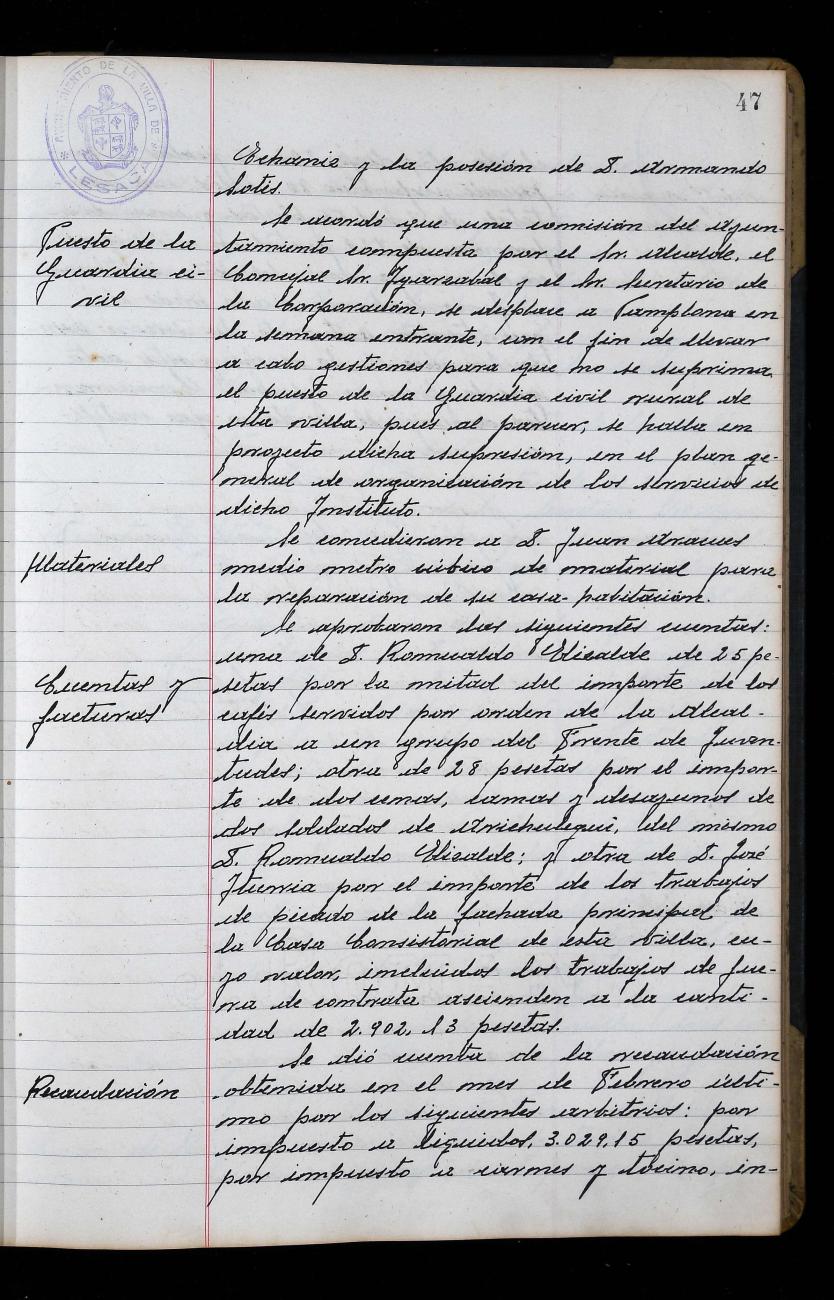 47
AYUNTAMIENTO DE LA VILLA DE
LESACA
Echaniz y la posesión de D. Armando
Sotés.
Puesto de la
Guardia ci-
vil
Se acordó que una comisión del Ayun-
tamiento compuesta por el Sr. Alcalde, el
Concejal Sr. Igarzabal y el Sr. Secretario de
la Corporación, se desplace a Pamplona en
la semana entrante, con el fin de llevar
a cabo gestiones para que no se suprima
el puesto de la Guardia civil rural de
esta villa, pues al parecer, se halla en
proyecto dicha supresión, en el plan ge-
neral de organización de los servicios de
dicho Instituto.
Materiales
Se concedieron a D. Juan Araues
medio metro cúbico de material para
la reparación de su casa-habitación.
Cuentas y
facturas
Se aprobaron las siguientes cuentas:
una de D. Romualdo Elizalde de 25 pe-
setas por la mitad del importe de los
cafés servidos por orden de la Alcal-
dia a un grupo del Frente de Juven-
tudes; otra de 28 pesetas por el impor-
te de dos cenas, camas y desayunos de
dos soldados de Arichulegui, del mismo
D. Romualdo Elizalde; y otra de D. José
Iturria por el importe de los trabajos
de picado de la fachada principal de
la Casa Consistorial de esta villa, cu-
yo valor, incluidos los trabajos de fue-
ra de contrata ascienden a la canti-
dad de 2.902,13 pesetas.
Recaudación
Se dió cuenta de la recaudación
obtenida en el mes de Febrero últi-
mo por los siguientes arbitrios: por
impuesto a líquidos, 3.029,15 pesetas,
por impuesto a carnes y tocino, in-